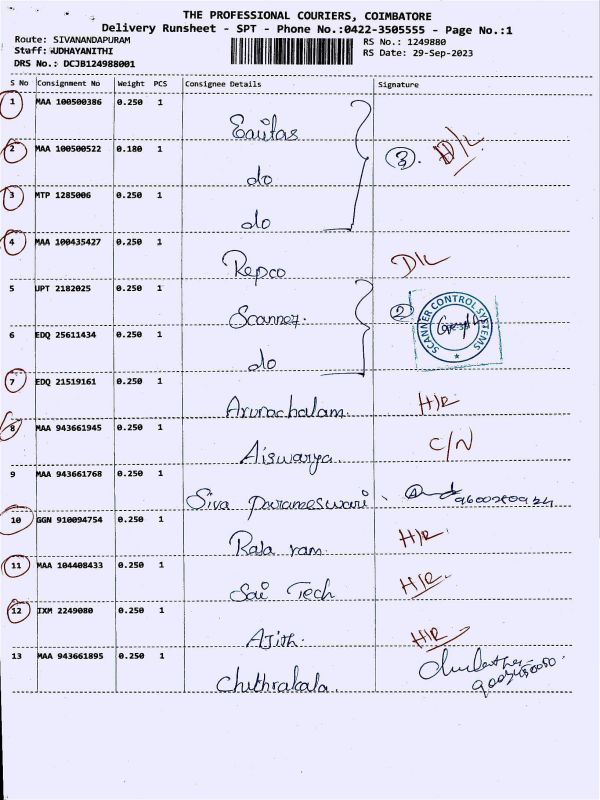 THE PROFESSIONAL COURIERS, COIMBATORE
Delivery Runsheet - SPT - Phone No.:0422-3505555 - Page No.:1
Route: SIVANANDAPURAM
Staff: UDHAYANITHI
DRS No.: DCJB124988001
RS No.: 1249880
RS Date: 29-Sep-2023
S No Consignment No Weight PCS Consignee Details Signature
1 MAA 100500386 0.250 1 Equitas
2 MAA 100500522 0.180 1 do 3. D/L
3 MTP 1285006 0.250 1 do
4 MAA 100435427 0.250 1 Repco D/L
5 UPT 2182025 0.250 1 Scanner. 2 SCANNER CONTROL SYSTEMS
6 EDQ 25611434 0.250 1 do
7 EDQ 21519161 0.250 1 Arunachalam. H/R
8 MAA 943661945 0.250 1 Aiswarya. C/N
9 MAA 943661768 0.250 1 Siva Parameeswari.
10 GGN 910094754 0.250 1 Raja ram. H/R
11 MAA 104408433 0.250 1 Sai Tech H/R
12 IXM 2249080 0.250 1 Ajith. H/R
13 MAA 943661895 0.250 1 Chithrakala.